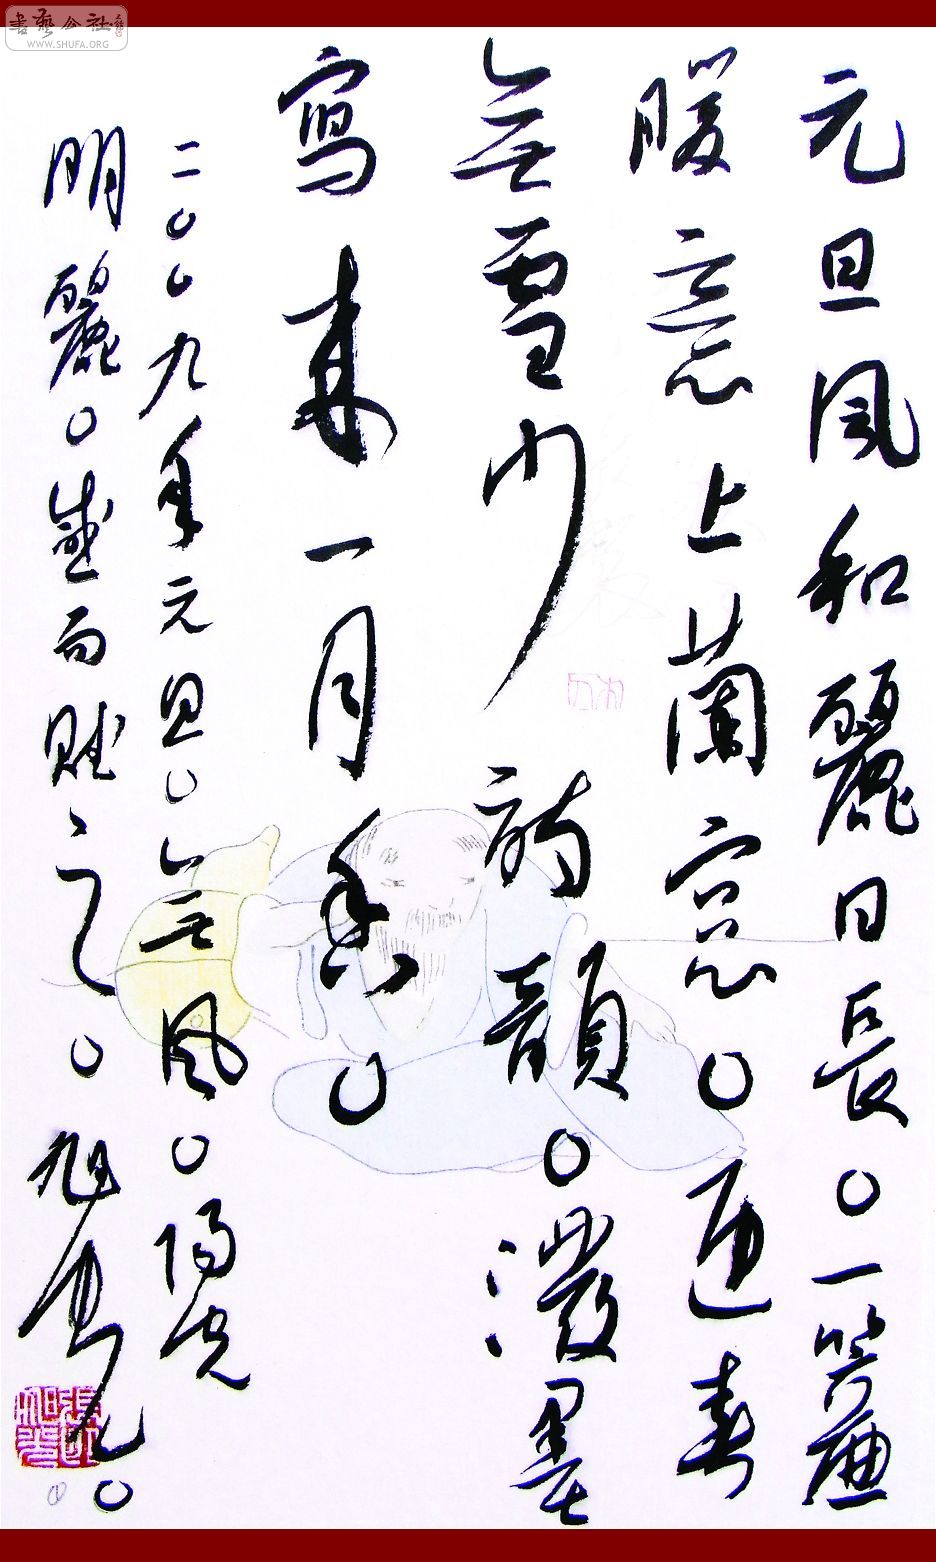 書藝公社
WWW.SHUFA.ORG
元旦風和麗日長。一簾
暖意上蘭窓。迎春
無雪少詩韻。潑墨
寫來一月香。
二〇〇九年元旦。無風。陽光
明麗。感而賦之。旭